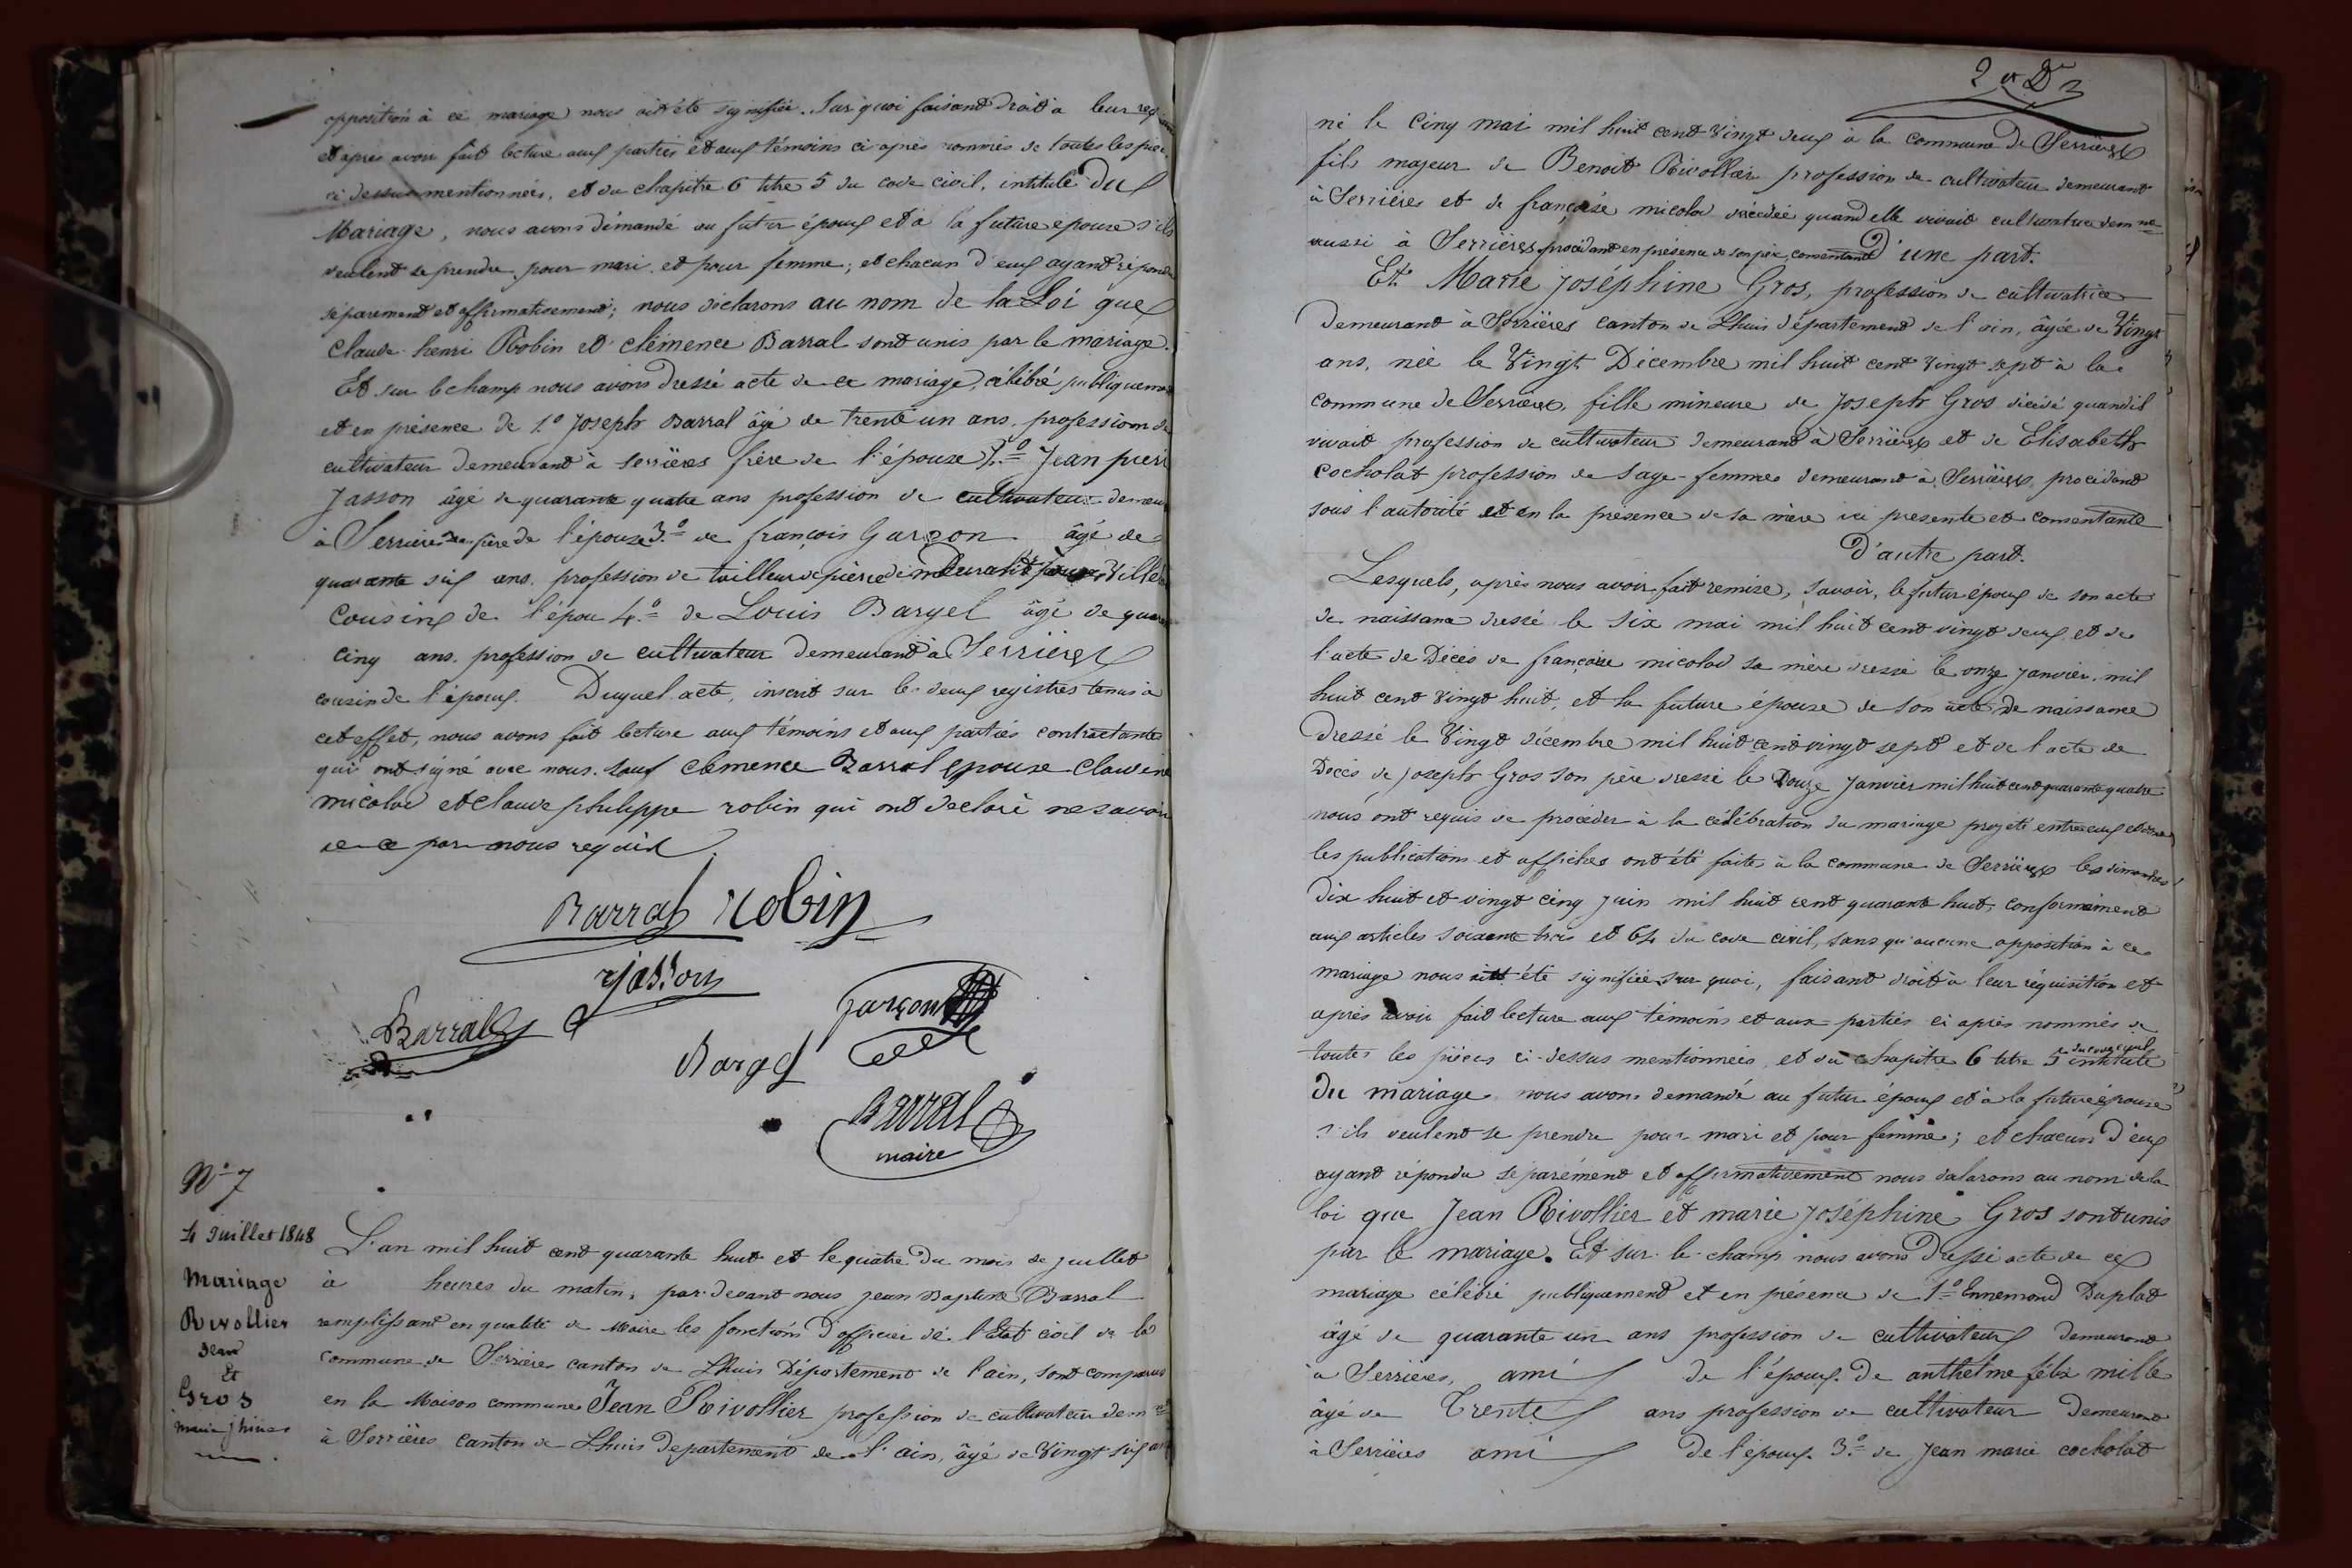 opposition à ce mariage nous ait été signifiée. Sur quoi faisant droit à leur
et après avoir fait lecture aux parties et aux témoins ci après nommés de toutes les
ci dessus mentionnées, et du chapitre 6 titre 5 du code civil, intitulé du
Mariage, nous avons démandé au futur époux et à la future epouse s'ils
veulent se prendre pour mari et pour femme; et chacun d'eux ayant répondu
séparement et affirmativement; nous déclarons au nom de la Loi que
Claude henri Robin et clémence Barral sont unis par le mariage.
Et sur le champ nous avons dressé acte de ce mariage, célébré publiquement
et en présence de 1.º Joseph Barral âgé de trente un ans, profession de
cultivateur demeurant à Serrières frère de l'épouse 2.º Jean
Jasson âgé de quarante quatre ans profession de cultivateur
à Serrières frère de l'épouse 3.º de françois Garçon âgé de
quarante six ans. profession de tailleur de pierre
Cousin de l'épou 4.º de Louis Bargel âgé de
Cinq ans. profession de cultivateur demeurant à Serrières
cousin de l'époux. Duquel acte, inscrit sur les deux registres tenus à
cet effet, nous avons fait lecture aux témoins et aux parties contractantes
qui ont signé avec nous. sauf clemence Barral epouse
micolod et claude philippe robin qui ont declaré ne savoir
de ce par nous requis.
Barral Robin
Jasson
Barral garçon
Bargel
Barral
maire
Nº 7
4 Juillet 1848
Mariage
Rivollier
Jean
Et
Gros
L'an mil huit cent quarante huit et le quatre du mois de juillet
à heures du matin; par devant nous jean Baptiste Barral
remplissant en qualité de Maire les fonctions d'officier de l'Etat civil de la
commune de Serrières canton de Lhuis Département de l'ain, sont comparus
en la Maison commune Jean Rivollier profession de cultivateur
à Serrières canton de Lhuis departement de l'ain, âgé de vingt six ans
né le Cinq mai mil huit cent vingt deux à la commune de Serrières
fils majeur de Benoit Rivollier profession de cultivateur demeurant
à Serrières et de françoise micolod décédée quand elle vivait cultivatrice
aussi à Serrières procédant en présence de son père consentant D'une part.
Et Marie Joséphine Gros, profession de cultivatrice
Demeurant à Serrières canton de Lhuis département de l'ain, âgée de Vingt
ans, née le Vingt Décembre mil huit cent vingt sept à la
commune de Serrières, fille mineure de Joseph Gros décédé quand il
vivait profession de cultivateur demeurant à Serrières et de Elisabeth
cocholat profession de sage-femme demeurant à Serrières procédant
sous l'autorité et en la présence de sa mère ici presente et consentante
D'autre part.
Lesquels, après nous avoir fait remise, savoir, le futur époux de son acte
de naissance dressé le six mai mil huit cent vingt deux et de
l'acte de Décès de françoise micolod sa mère dressé le onze janvier mil
huit cent vingt huit, et la future épouse de son acte de naissance
Dressé le Vingt décembre mil huit cent vingt sept et de l'acte de
Décès de joseph Gros son père dressé le Douze Janvier mil huit cent quarante quatre
nous ont requis de procéder à la célébration du mariage projeté entre eux
les publications et affiches ont été faites à la commune de Serrières les dimanches
Dix huit et vingt cinq juin mil huit cent quarante huit, conformément
aux articles soixante trois et 64 du code civil, sans qu'aucune opposition à ce
mariage nous ait été signifiée sur quoi, faisant droit à leur réquisition et
après avoir fait lecture aux témoins et aux parties ci après nommés de
toutes les pièces ci-dessus mentionnées, et du chapitre 6 titre 5 du code civil intitulé
Du mariage nous avons demandé au futur époux et à la future épouse
s'ils veulent se prendre pour mari et pour femme; et chacun d'eux
ayant répondu séparément et affirmativement nous déclarons au nom de la
loi que Jean Rivollier et marie joséphine Gros sont unis
par le mariage. Et sur le champ nous avons dressé acte de ce
mariage célébré publiquement et en présence de 1.º Ennemond Duplat
âgé de quarante un ans profession de cultivateur demeurant
à Serrières, ami de l'époux. De anthelme félix mille
âgé de Trente ans profession de cultivateur Demeurant
à Serrières ami de l'époux. 3.º de Jean marie cocholat